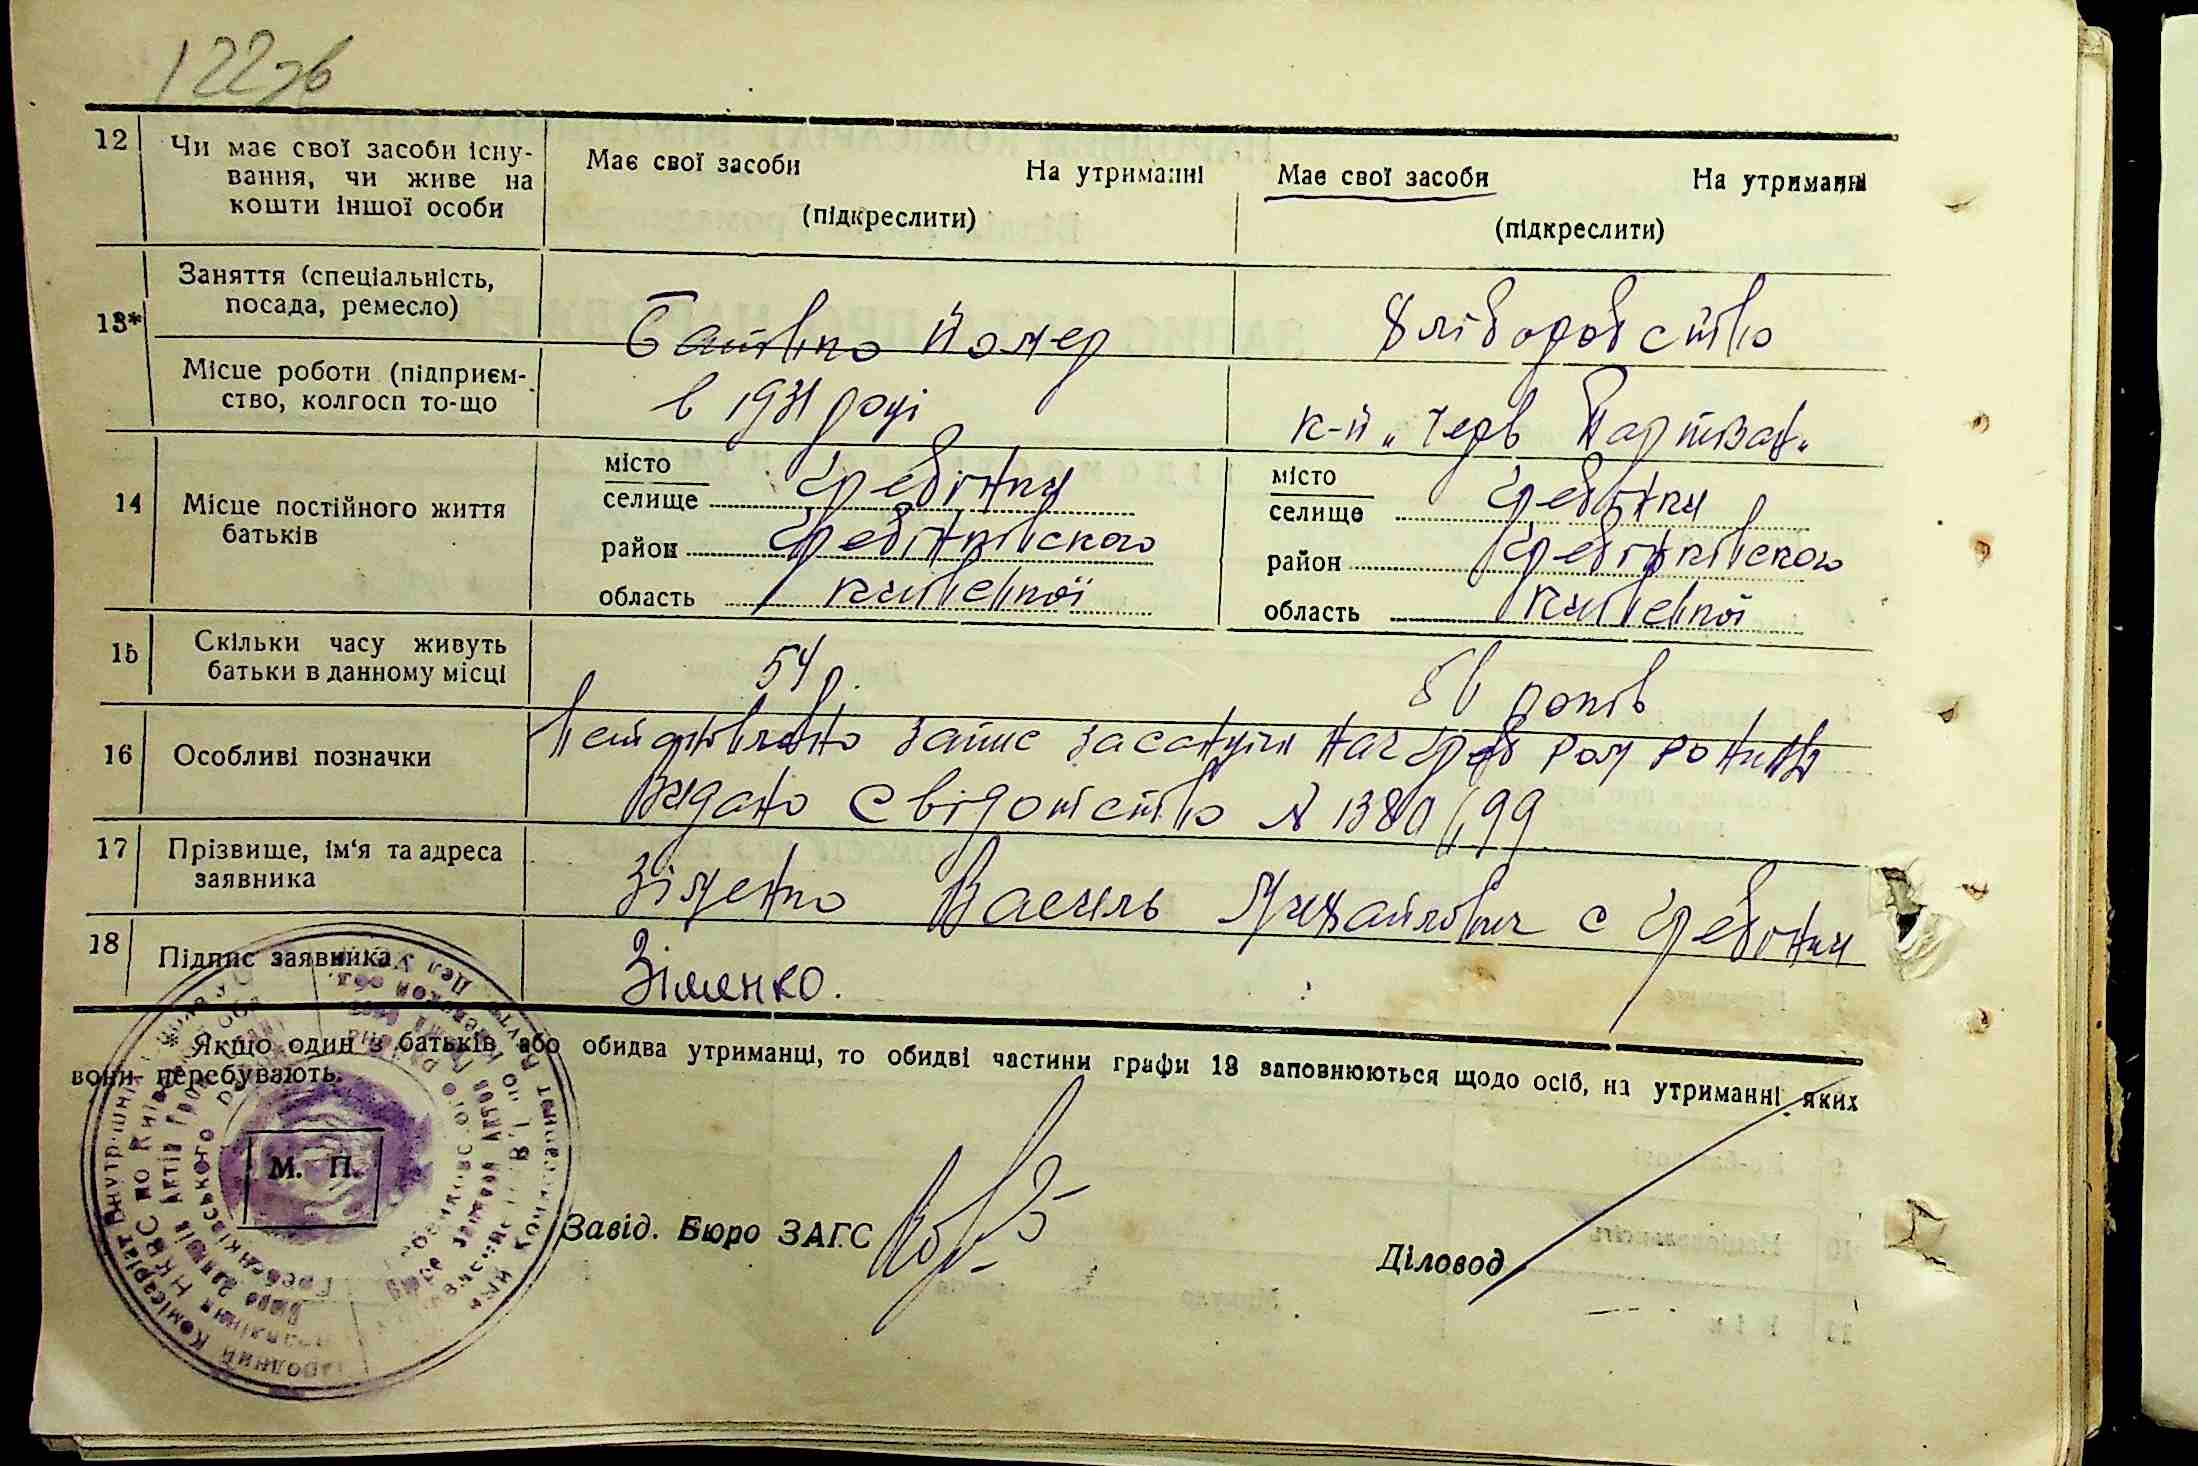 122зв
12 Чи має свої засоби існу-
вання, чи живе на
кошти іншої особи
Має свої засоби На утриманні
(підкреслити)
Має свої засоби На утриманні
(підкреслити)
13* Заняття (спеціальність,
посада, ремесло)
Батько помер
Хліборобство
Місце роботи (підприєм-
ство, колгосп то-що
в 1931 році
к-п „Черв Партизан"
14 Місце постійного життя
батьків
місто
селище Гребінки
район Гребінківского
область Київської
місто
селище Гребінки
район Гребінківского
область Київської
15 Скільки часу живуть
батьки в данному місці
54
років
16 Особливі позначки
Встановлено запис
Видано Свідотство N
17 Прізвище, ім'я та адреса
заявника
Зіменко Василь Михайлович с Гребінки
18 Підпис заявника
Зіменко.
Якщо один з батьків або обидва утриманці, то обидві частини графи 13 заповнюються щодо осіб, на утриманні яких
вони перебувають.
М. П.
Завід. Бюро ЗАГС
Діловод